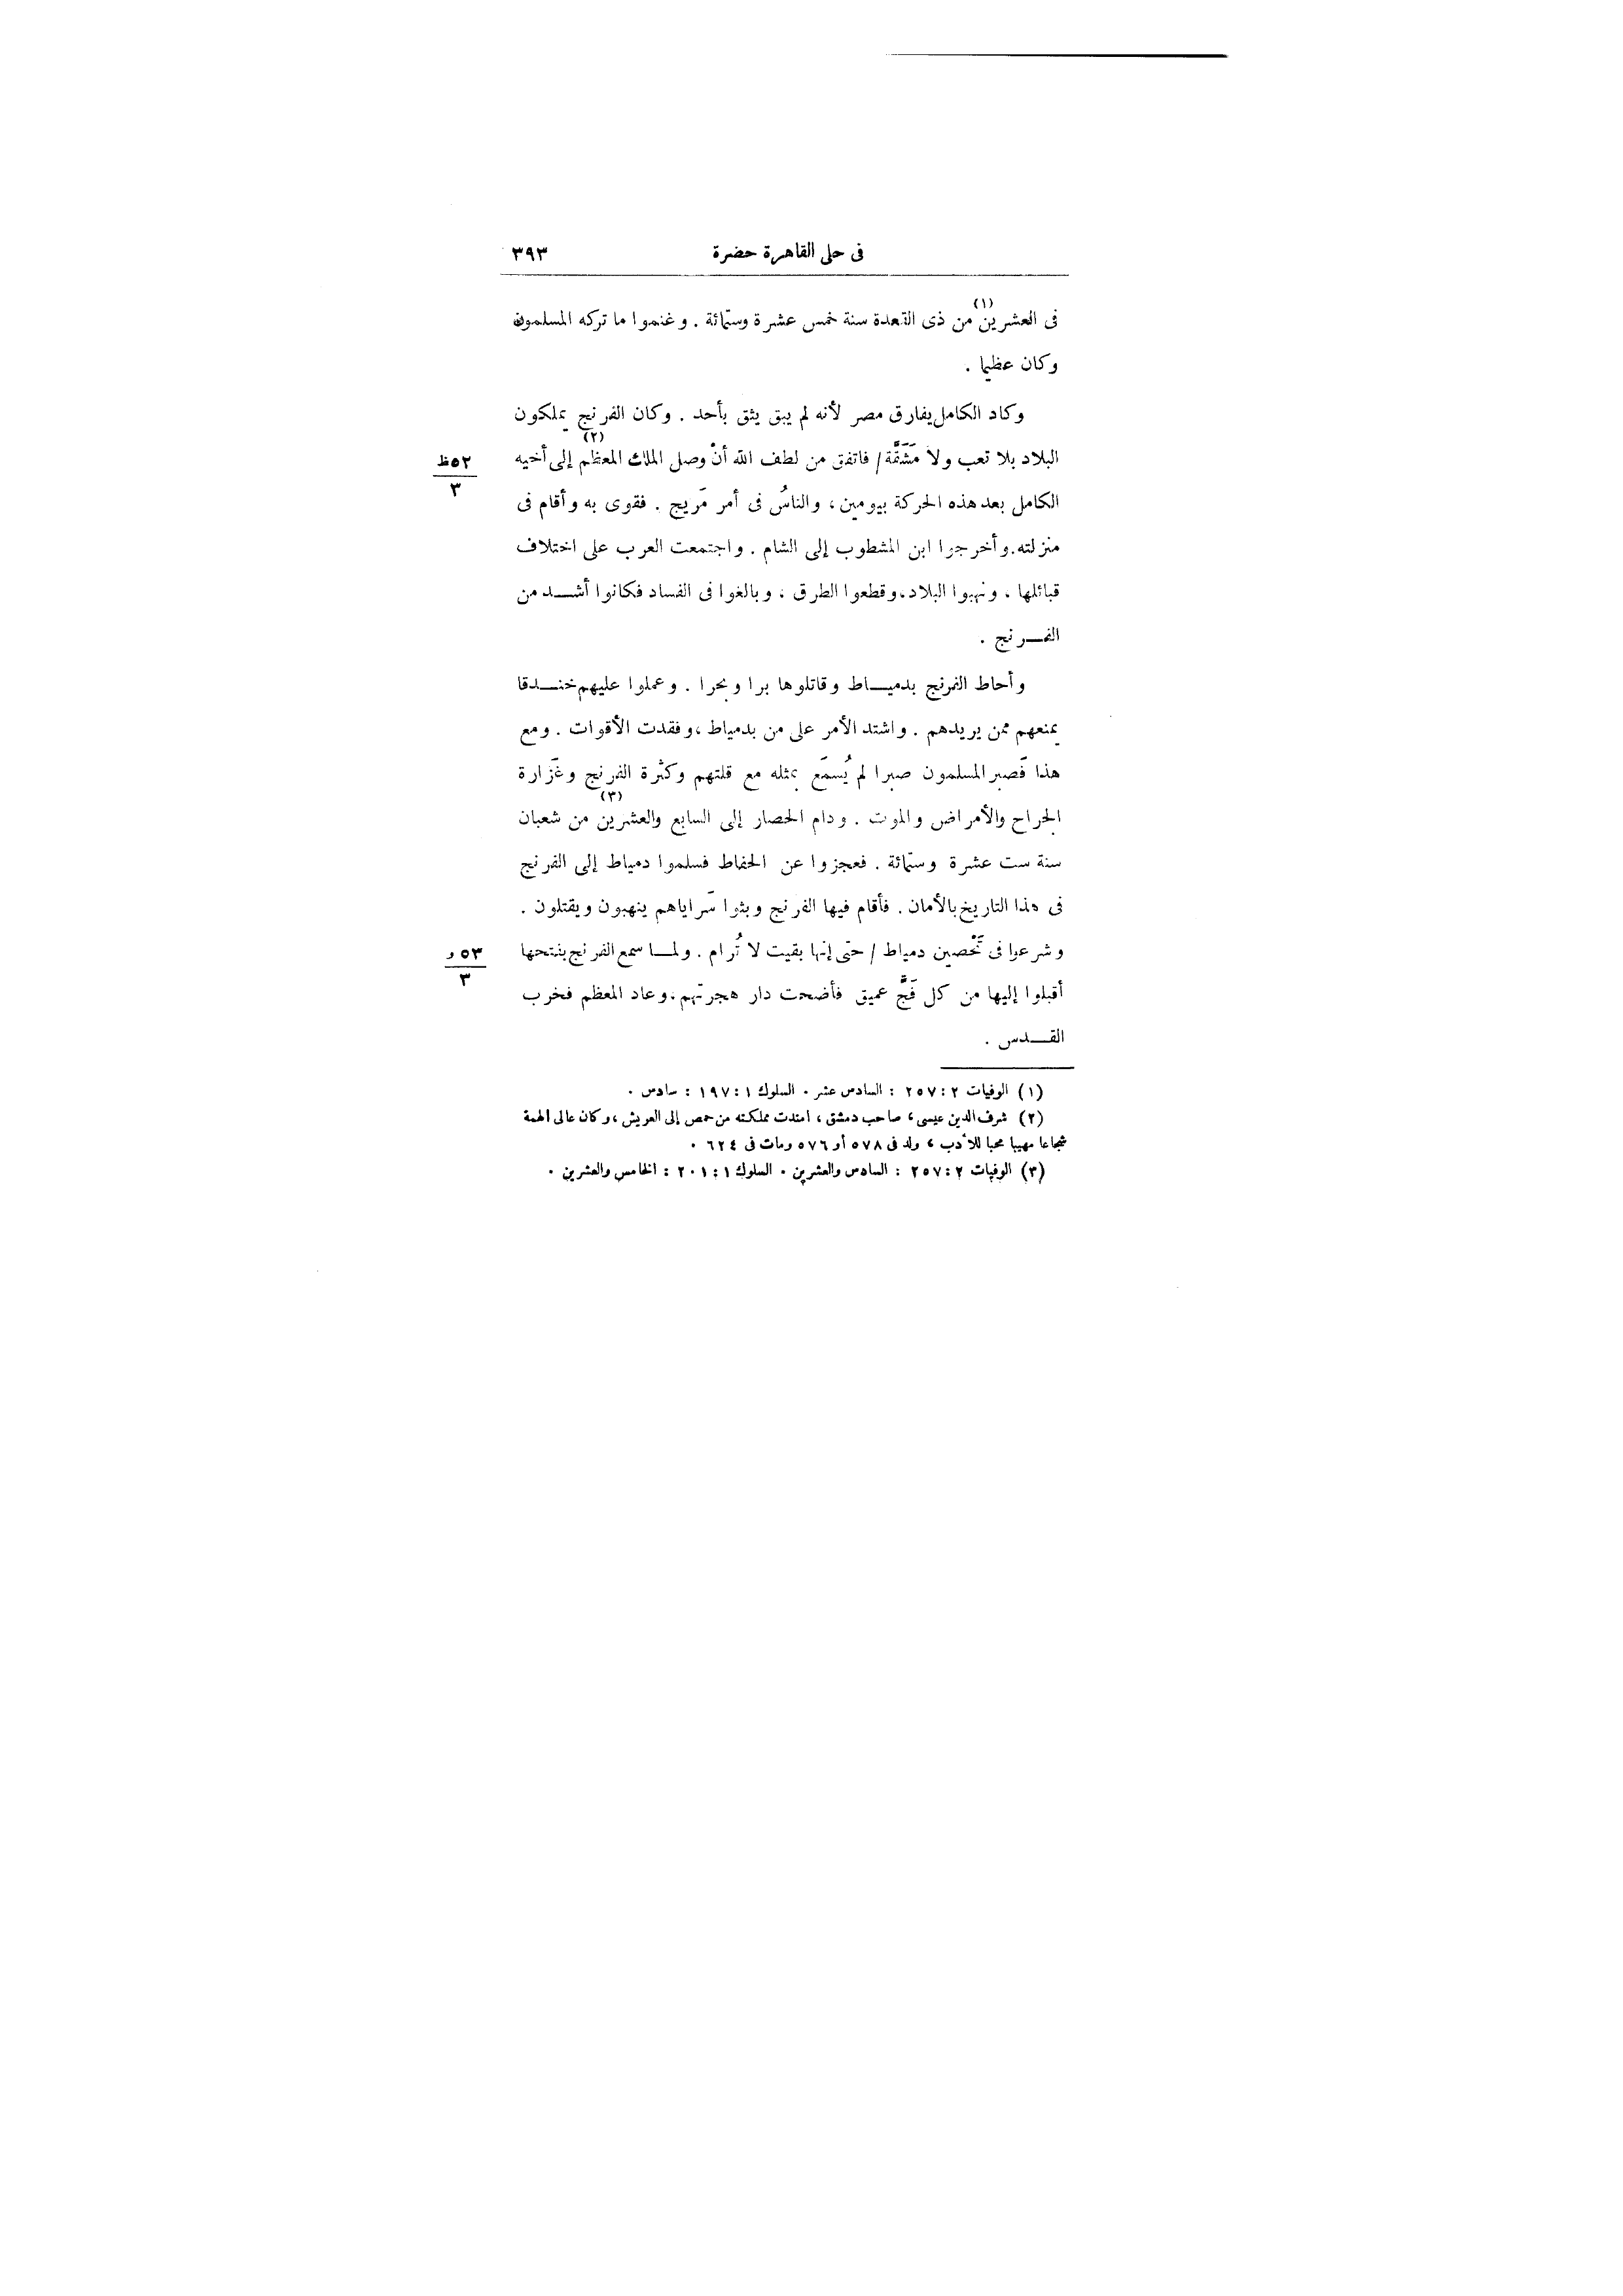 فى حلى القاهرة حضرة ٣٩٣
فى العشرين (١) من ذى القعدة سنة خمس عشرة وستمّائة . وغنموا ما تركه المسلمون
وكان عظيما .
وكاد الكامل يفارق مصر لأنه لم يبق يثق بأحد . وكان الفرنج يملكون
البلاد بلا تعب ولا مَشَقَّة / فاتفق من لطف الله أنْ وصل الملك المعظم (٢) إلى أخيه
٥٢ظ
٣
الكامل بعد هذه الحركة بيومين، والناسُ فى أمر مَريج . فقوى به وأقام فى
منزلته.وأخرجوا ابن المشطوب إلى الشام . واجتمعت العرب على اختلاف
قبائلها ، ونهبوا البلاد،وقطعوا الطرق ، وبالغوا فى الفساد فكانوا أشــد من
الفــرنج .
وأحاط الفرنج بدميــاط وقاتلوها برا وبحرا . وعملوا عليهم خنــدقا
يمنعهم ممن يريدهم . واشتد الأمر على من بدمياط ،وفقدت الأقوات . ومع
هذا فَصبر المسلمون صبرا لم يُسمَع بمثله مع قلتهم وكثرة الفرنج وغَزارة
الجراح والأمراض والموت . ودام الحصار إلى السابع والعشرين (٣) من شعبان
سنة ست عشرة وستمّائة . فعجزوا عن الحفاط فسلموا دمياط إلى الفرنج
فى هذا التاريخ بالأمان . فأقام فيها الفرنج وبثوا سَراياهم ينهبون ويقتلون .
وشرعوا فى تَحْصين دمياط / حتّى إنها بقيت لا تُرام . ولمــا سمع الفرنج بفتحها
٥٣ و
٣
أقبلوا إليها من كل فَجٍّ عميق فأضحت دار هجرتهم.وعاد المعظم فخرب
القــدس .
(١) الوفيات ٢ : ٢٥٧ : السادس عشر . السلوك ١ : ١٩٧ : سادس .
(٢) شرف الدين عيسى، صاحب دمشق، امتدت مملكته من حمص إلى العريش، وكان عالى الهمة
شجاعا مهيبا محبا للأدب، ولد فى ٥٧٨ أو ٥٧٦ ومات فى ٦٢٤ .
(٣) الوفيات ٢ : ٢٥٧ : السادس والعشرين . السلوك ١ : ٢٠١ : الخامس والعشرين .